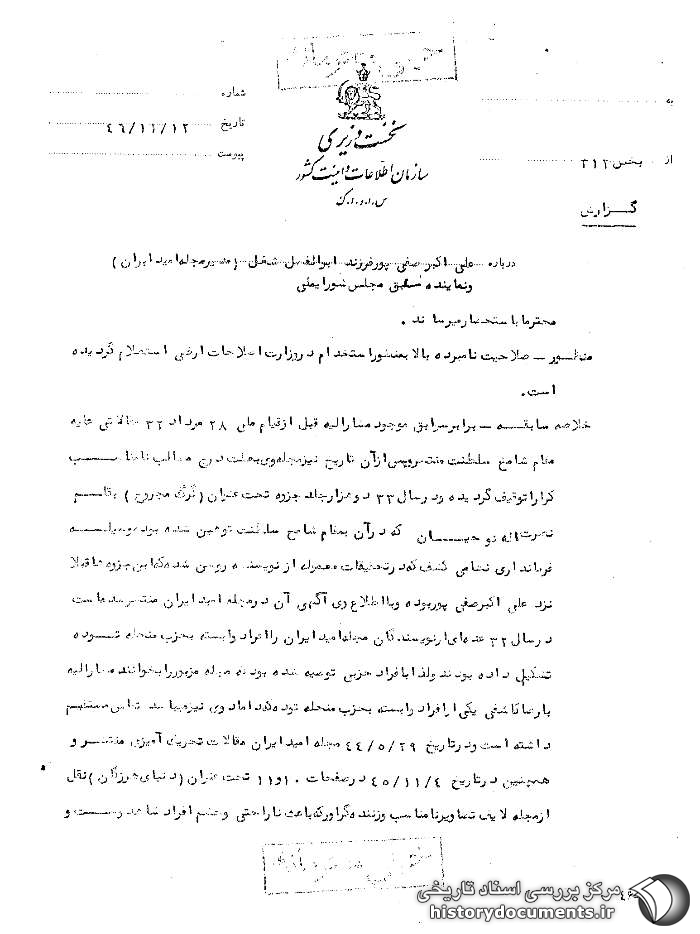 به
شماره
تاریخ ۴۶/۱۲/۱۲
پیوست
نخست وزیری
سازمان اطلاعات و امنیت کشور
س.ا.و.ا.ک
از بخش ۳۱۲
گزارش
درباره علی اکبر صفی پور فرزند ابوالفضل شغل (مدیر مجله امید ایران)
و نماینده سابق مجلس شورایملی
محترما باستحضار میرساند.
منظور – صلاحیت نامبرده بالا بمنظور استخدام در وزارت اصلاحات ارضی استعلام گردیده
است.
خلاصه سابقه – برابر سوابق موجود مشارالیه قبل از قیام ملی ۲۸ مرداد ۳۲ مقالاتی علیه
مقام شامخ سلطنت منتشر و پس از آن تاریخ نیز مجله وی بعلت درج مطالب نامناسب
کرارا توقیف گردیده و در سال ۳۳ دو هزار جلد جزوه تحت عنوان (گرگ مجروح) بقلم
نصرت اله نوحیان که در آن بمقام شامخ سلطنت توهین شده بود بوسیله
فرمانداری نظامی کشف که در تحقیقات معموله از نویسنده روشن شده که این جزوه ها قبلا
نزد علی اکبر صفی پور بوده و با اطلاع وی آگهی آن در مجله امید ایران منتشر شده است
در سال ۳۲ عده ای از نویسندگان مجله امید ایران را افراد وابسته بحزب منحله توده
تشکیل داده بودند ولذا بافراد حزبی توصیه شده بود که مجله مزبور را بخوانند مشارالیه
با رضا کاشفی یکی از افراد وابسته بحزب منحله توده که داماد وی نیز میباشد تماس مستقیم
داشته است و در تاریخ ۴۴/۵/۲۹ مجله امید ایران مقالات تحریک آمیزی منتشر و
همچنین در تاریخ ۴۵/۱۱/۴ در صفحات ۱۰ و ۱۱ تحت عنوان (دنیای هرزگان) نقل
از مجله لایف تصاویر نامناسب و زننده گراور که باعث ناراحتی و خشم افراد شاهدوست و
مرکز بررسی اسناد تاریخی
historydocuments.ir